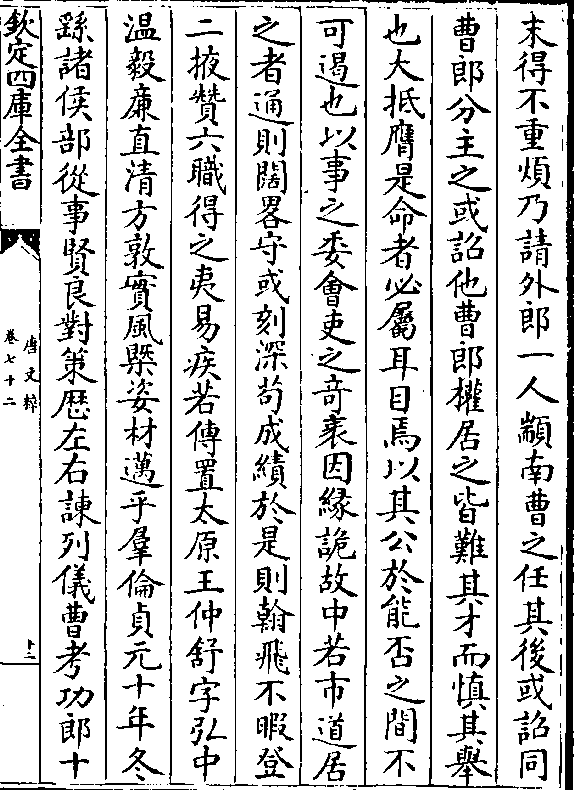 末得不重煩乃請外郎一人顓南曹之任其後或詔同
曹郎分主之或詔他曹郎權居之皆難其才而慎其舉
也大抵膺是命者必屬耳目焉以其公於能否之間不
可遏也以事之委會吏之奇衺因緣詭故中若市道居
之者通則闊畧守或刻深苟成績於是則翰飛不暇登
二掖贊六職得之夷易疾若傳置太原王仲舒字弘中
温毅廉直清方敦實風槩姿材邁乎羣倫貞元十年冬
繇諸侯部從事賢良對策歴左右諫列儀曹考功郎十
欽定四庫全書
唐文粹
卷七十二
十二